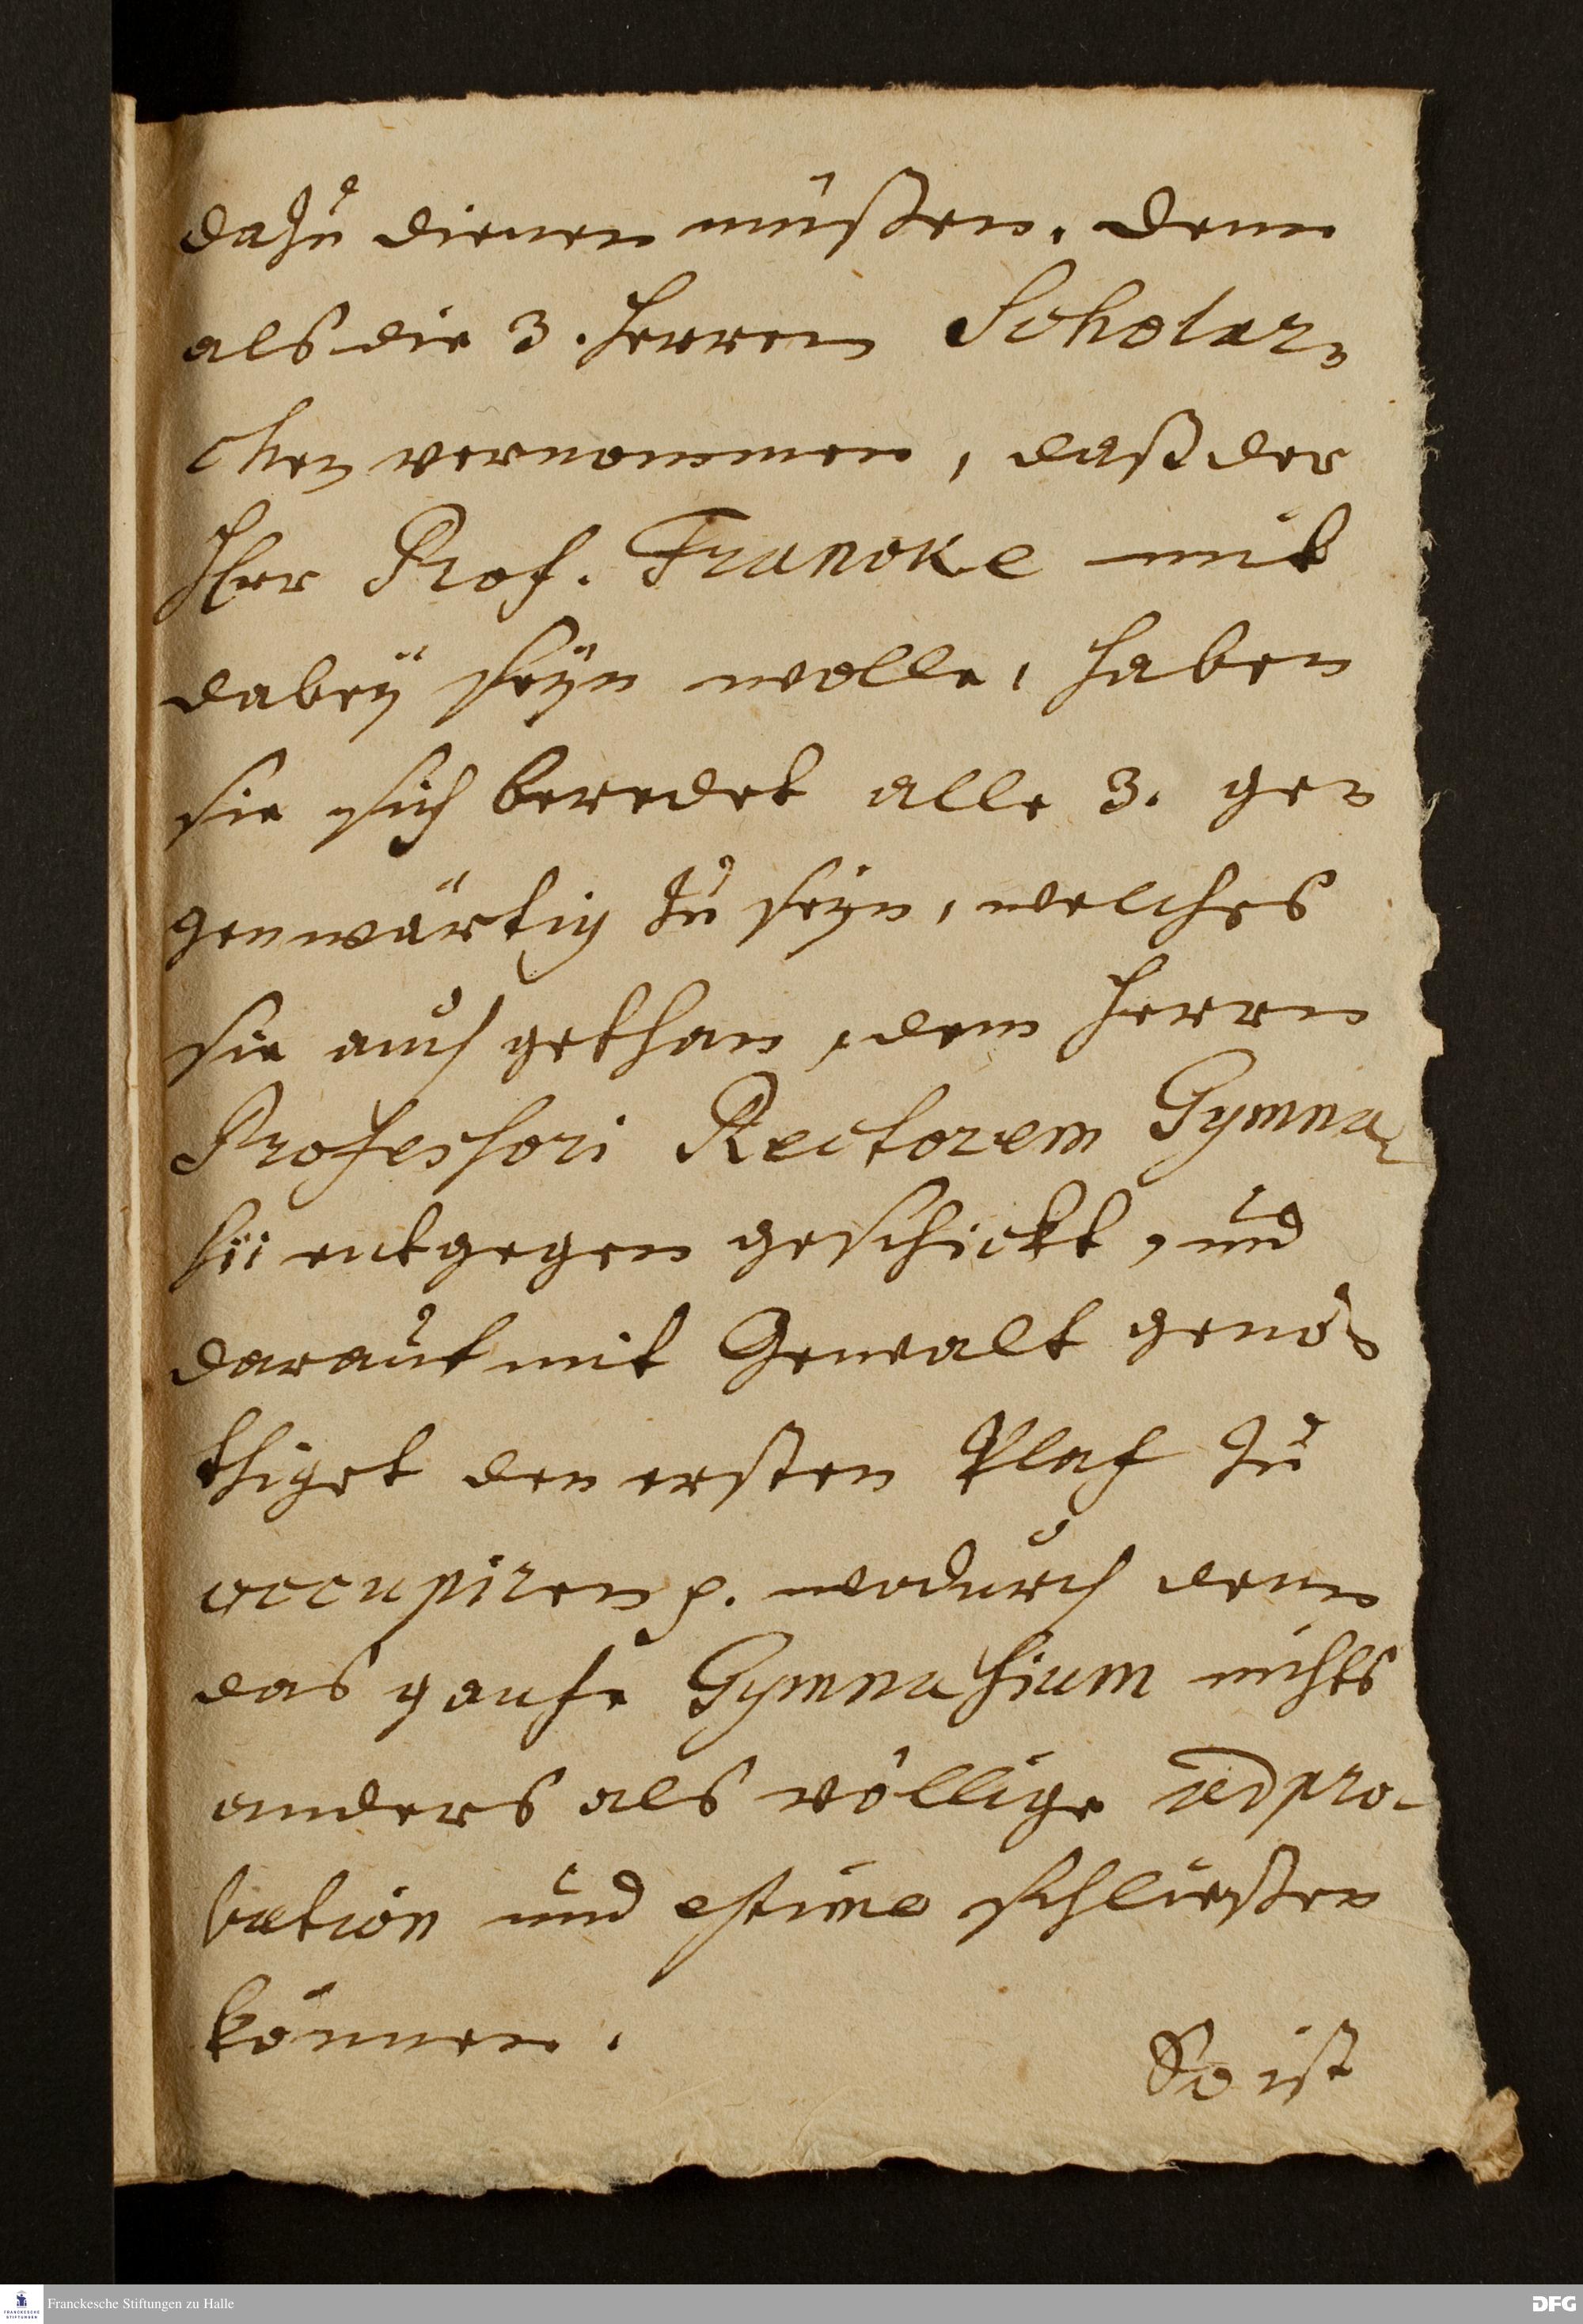 dazu dienen müßen. denn
als die 3. Herren Scholar-
chen vernommen, daß der
Herr Prof. Francke mit
dabeÿ seÿn wolle, haben
sie sich beredet alle 3. ge-
genwärtig zu seyn, welches
sie auch gethan, dem Herrn
Professori Rectorem Gymna-
sii entgegen geschickt, und
darauf mit Gewalt genö-
thiget den ersten Platz zu
occupiren p. wodurch denn
das gantze Gymnasium nichts
anders als völlige adpro-
bation und estime schließen
können.
So ist
Franckesche Stiftungen zu Halle
FRANCKESCHE STIFTUNGEN
DFG